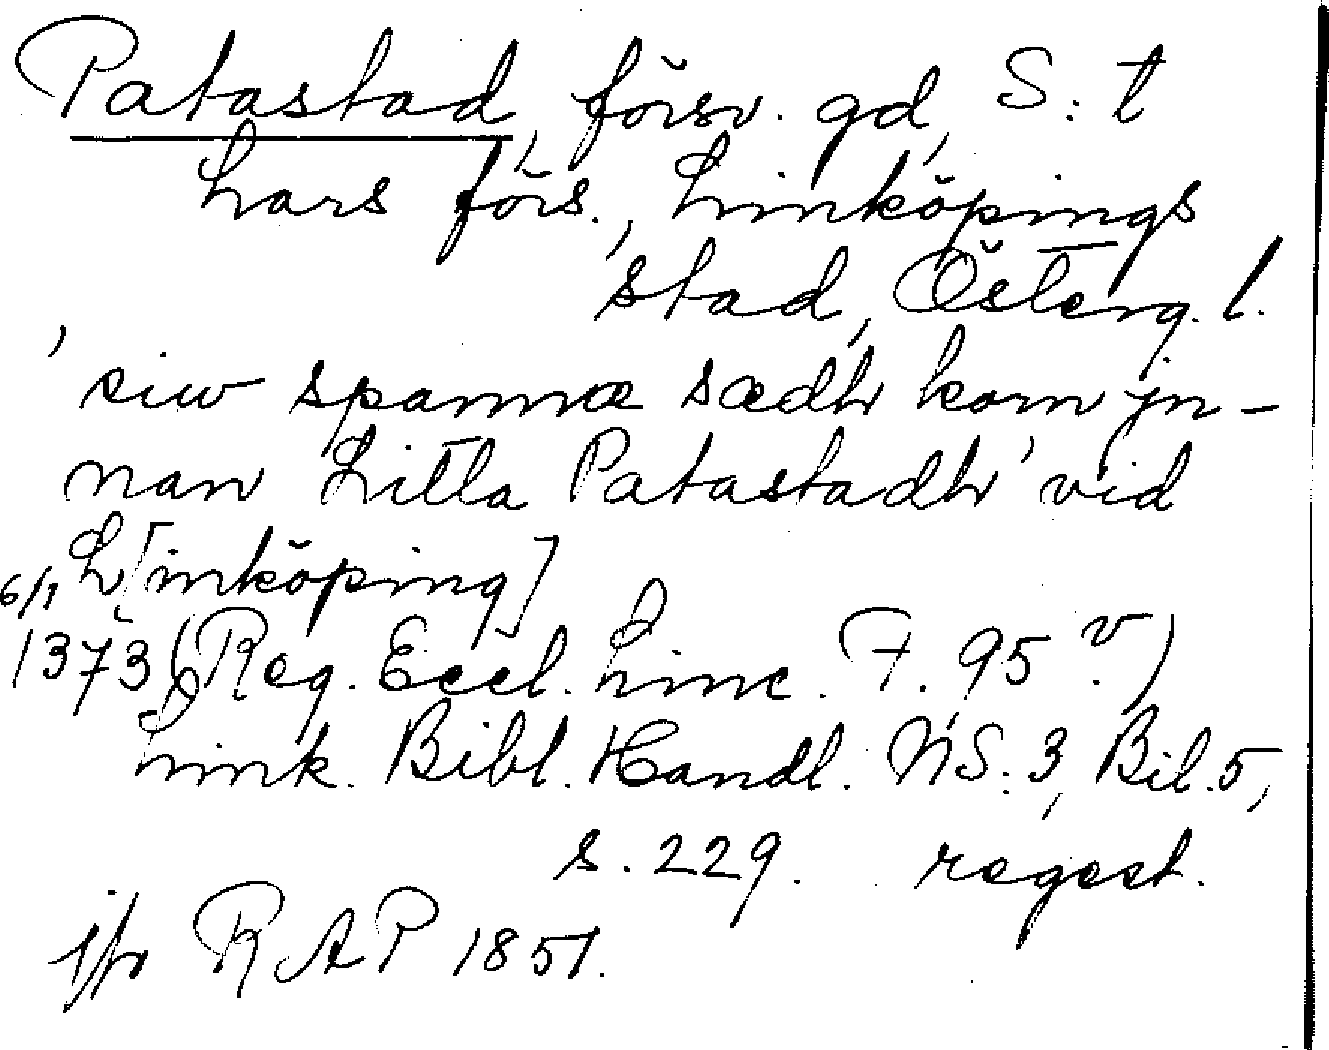 Patastad, försv. gd, S:t
Lars förs., Linköpings
stad, Österg. l.
'siw spannæ sædh korn jn-
nan Litla Patastadh' vid
L[inköping]
6/1
1373 (Reg. Eccl. Linc. F. 95 v.)
Link. Bibl. Handl. NS. 3, Bil. 5,
s. 229. regest.
jfr RAP 1851.